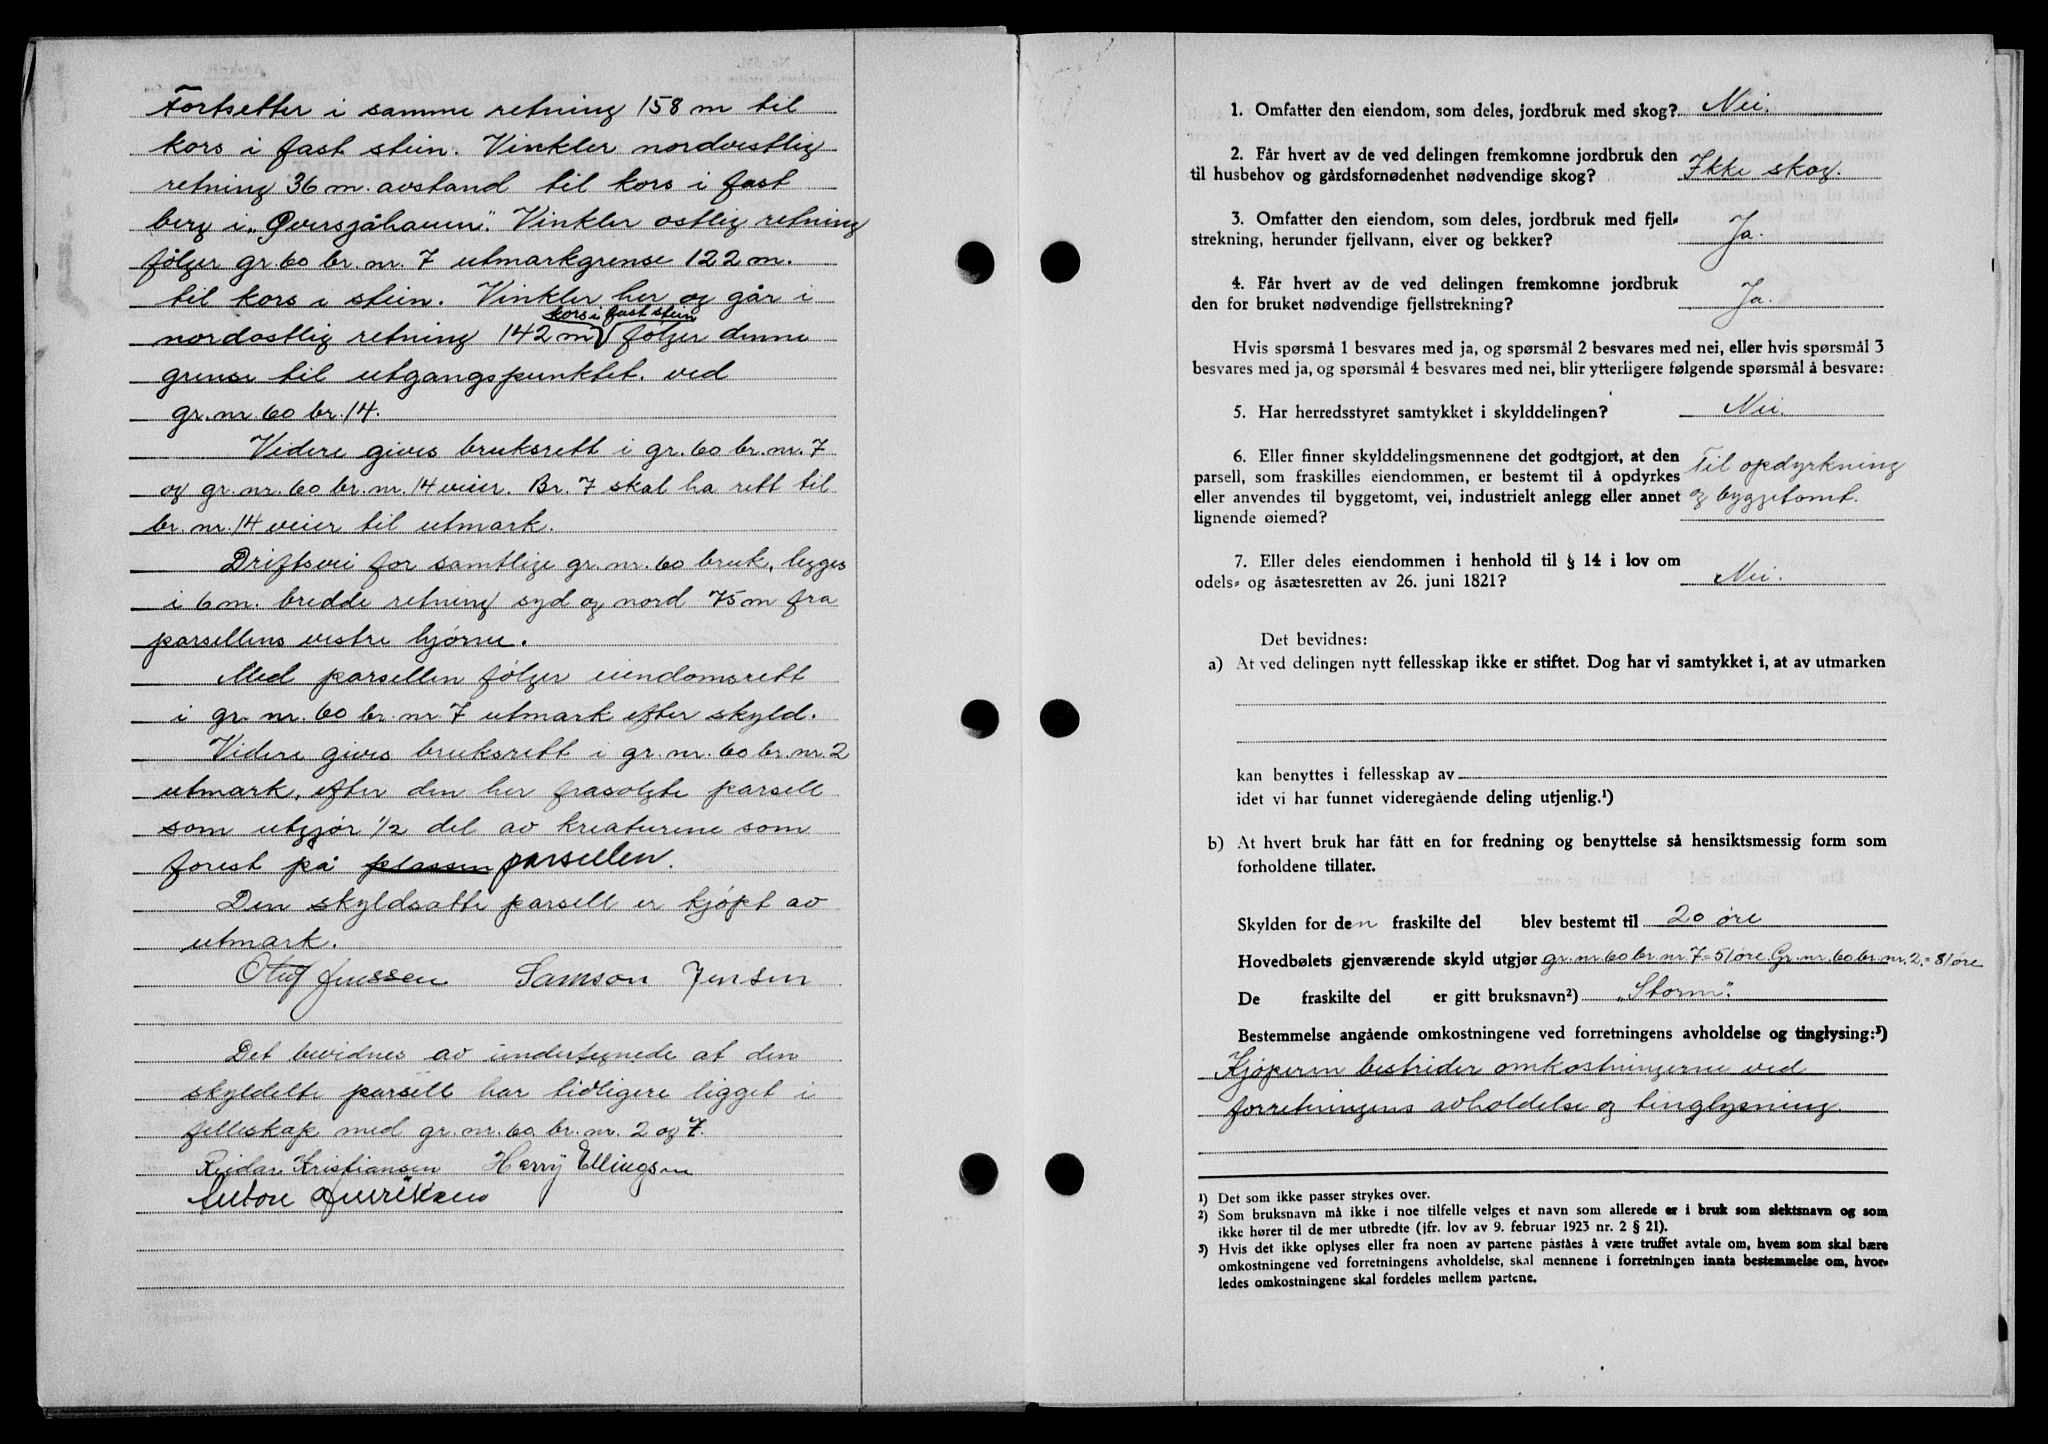 Fortsetter i samme retning 158 m til
kors i fast stein. Vinkler nordvestlig
retning 36 m. avstand til kors i fast
berg i „Qversjåhauen". Vinkler ostlig retning
følger gr. 60 br. nr. 7 utmarkgrense 122 m.
til kors i stein. Vinkler her og går i
kors i fast stein
nordostlig retning 142 m følger denne
grense til utgangspunktet. ved
gr. nr. 60 br. 14.
Videre gives bruksrett i gr. 60 br. nr. 7
og gr. nr. 60 br. nr. 14 veier. Br. 7 skal ha rett til
br. nr. 14 veier til utmark.
Driftsvei for samtlige gr. nr. 60 bruk, legges
i 6 m. bredde retning syd og nord 75 m fra
parsellens vestre hjørne.
Med parsellen følger eiendomsrett
i gr. nr. 60 br. nr 7 utmark efter skyld.
Videre gives bruksrett i gr. nr. 60 br. nr. 2
utmark, efter den her frasolgte parsell
som utgjør 1/2 del av kreaturene som
forest på plassen parsellen.
Den skyldsatte parsell er kjøpt av
utmark.
Oluf Jenssen Samson Jensen
Det bevidnes av undertegnede at den
skyldelte parsell har tidligere ligget i
felleskap med gr. nr. 60 br. nr. 2 og 7.
Reidar Kristiansen Harry Ellingsen
Anton Henriksen
1. Omfatter den eiendom, som deles, jordbruk med skog? Nei.
2. Får hvert av de ved delingen fremkomne jordbruk den
til husbehov og gårdsfornødenhet nødvendige skog? Ikke skog.
3. Omfatter den eiendom, som deles, jordbruk med fjell-
strekning, herunder fjellvann, elver og bekker? Ja.
4. Får hvert av de ved delingen fremkomne jordbruk
den for bruket nødvendige fjellstrekning? Ja.
Hvis spørsmå 1 besvares med ja, og spørsmål 2 besvares med nei, eller hvis spørsmål 3
besvares med ja, og spørsmål 4 besvares med nei, blir ytterligere følgende spørsmål å besvare:
5. Har herredsstyret samtykket i skylddelingen? Nei.
6. Eller finner skylddelingsmennene det godtgjort, at den
parsell, som fraskilles eiendommen, er bestemt til å opdyrkes Til opdyrkning
eller anvendes til byggetomt, vei, industrielt anlegg eller annet og byggetomt.
lignende øiemed?
7. Eller deles eiendommen i henhold til § 14 i lov om
odels- og åsætesretten av 26. juni 1821? Nei.
Det bevidnes:
a) At ved delingen nytt fellesskap ikke er stiftet. Dog har vi samtykket i, at av utmarken
kan benyttes i fellesskap av
idet vi har funnet videregående deling utjenlig.¹)
b) At hvert bruk har fått en for fredning og benyttelse så hensiktsmessig form som
forholdene tillater.
Skylden for den fraskilte del blev bestemt til 20 øre
Hovedbølets gjenværende skyld utgjør gr. nr 60 br nr 7 = 51 øre. Gr. nr. 60 br. nr. 2. = 81 øre
De fraskilte del er gitt bruksnavn²) „Storm".
Bestemmelse angående omkostningene ved forretningens avholdelse og tinglysing:³)
Kjøperen bestrider omkostningerne ved
forretningens avholdelse og tinglysning.
¹) Det som ikke passer strykes over.
²) Som bruksnavn må ikke i noe tilfelle velges et navn som allerede er i bruk som slektsnavn og som
ikke hører til de mer utbredte (jfr. lov av 9. februar 1923 nr. 2 § 21).
³) Hvis det ikke oplyses eller fra noen av partene påståes å være truffet avtale om, hvem som skal bære
omkostningene ved forretningens avholdelse, skal mennene i forretningen innta bestemmelse om, hvor-
ledes omkostningene skal fordeles mellem partene.